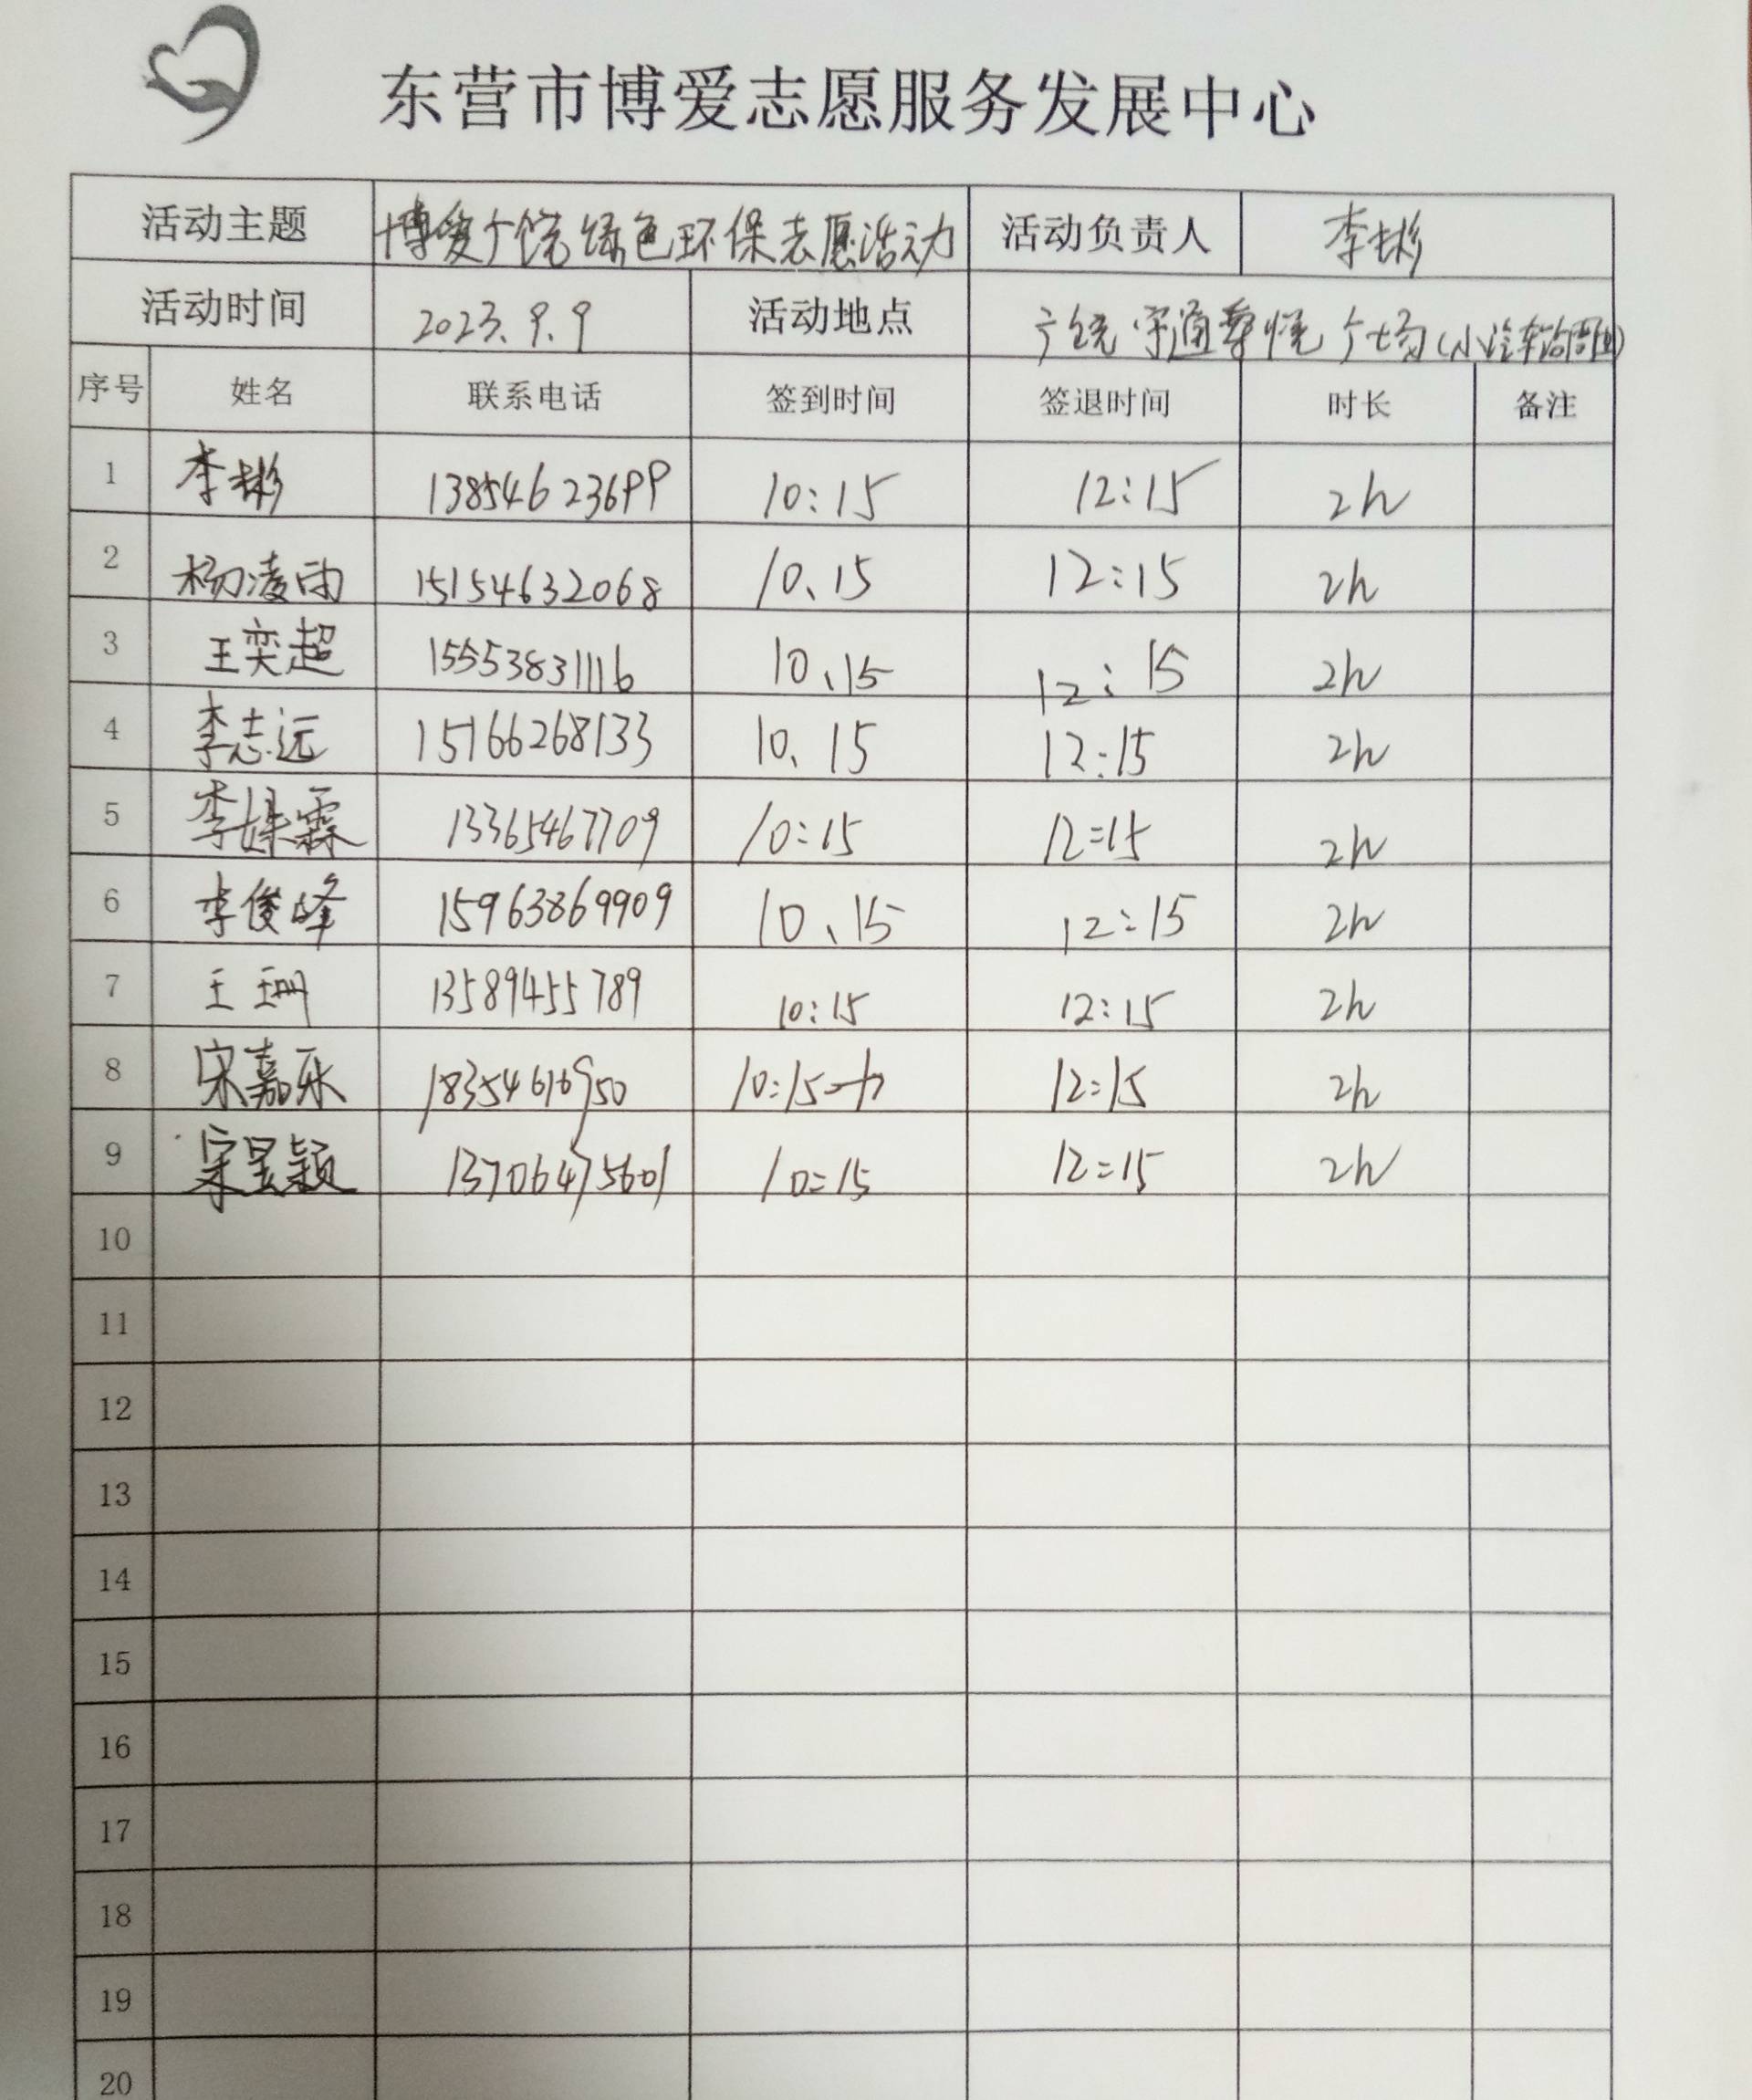 东营市博爱志愿服务发展中心
活动主题 博爱广饶绿色环保志愿活动 活动负责人 李彬
活动时间 2023.9.9 活动地点 广饶 广场(小汽车站周边)
序号 姓名 联系电话 签到时间 签退时间 时长 备注
1 李彬 13854623699 10:15 12:15 2h
2 杨凌雨 15154632068 10、15 12:15 2h
3 王奕超 15553831116 10、15 12:15 2h
4 李志远 15166268133 10、15 12:15 2h
5 李 霖 13365467709 10:15 12:15 2h
6 李俊峰 15963869909 10、15 12:15 2h
7 王珊 13589455789 10:15 12:15 2h
8 宋嘉乐 18354616950 10:15 12:15 2h
9 宋昱颖 13706475601 10:15 12:15 2h
10
11
12
13
14
15
16
17
18
19
20